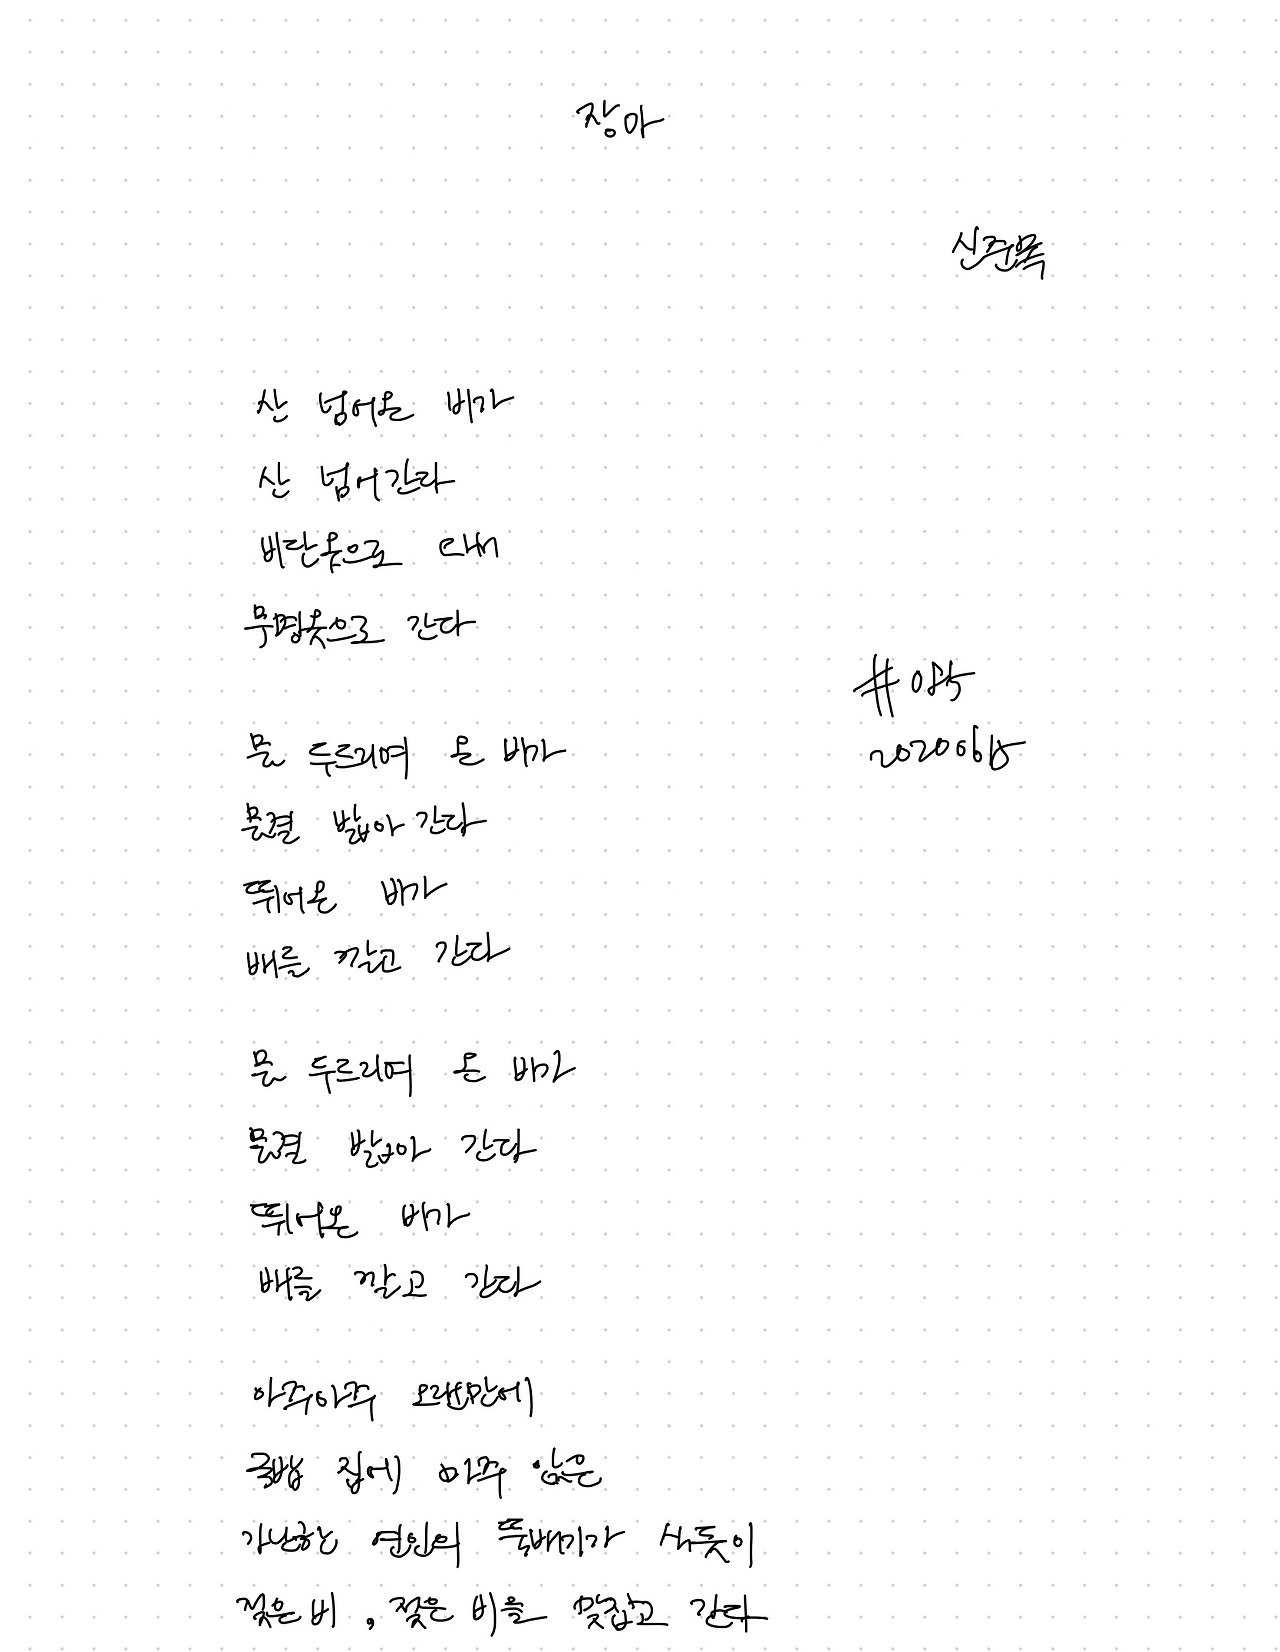 장마
신준목
산 넘어온 비가
산 넘어간다
비단옷으로 와서
무명옷으로 간다
#085
20200615
문 두드리며 온 비가
물결 밟아 간다
뛰어온 비가
배를 깔고 간다
문 두드리며 온 비가
물결 밟아 간다
뛰어온 비가
배를 깔고 간다
아주아주 오랜만에
국밥 집에 마주 앉은
가난한 연인의 뚝배기가 식듯이
젖은 비, 젖은 비을 맞잡고 간다